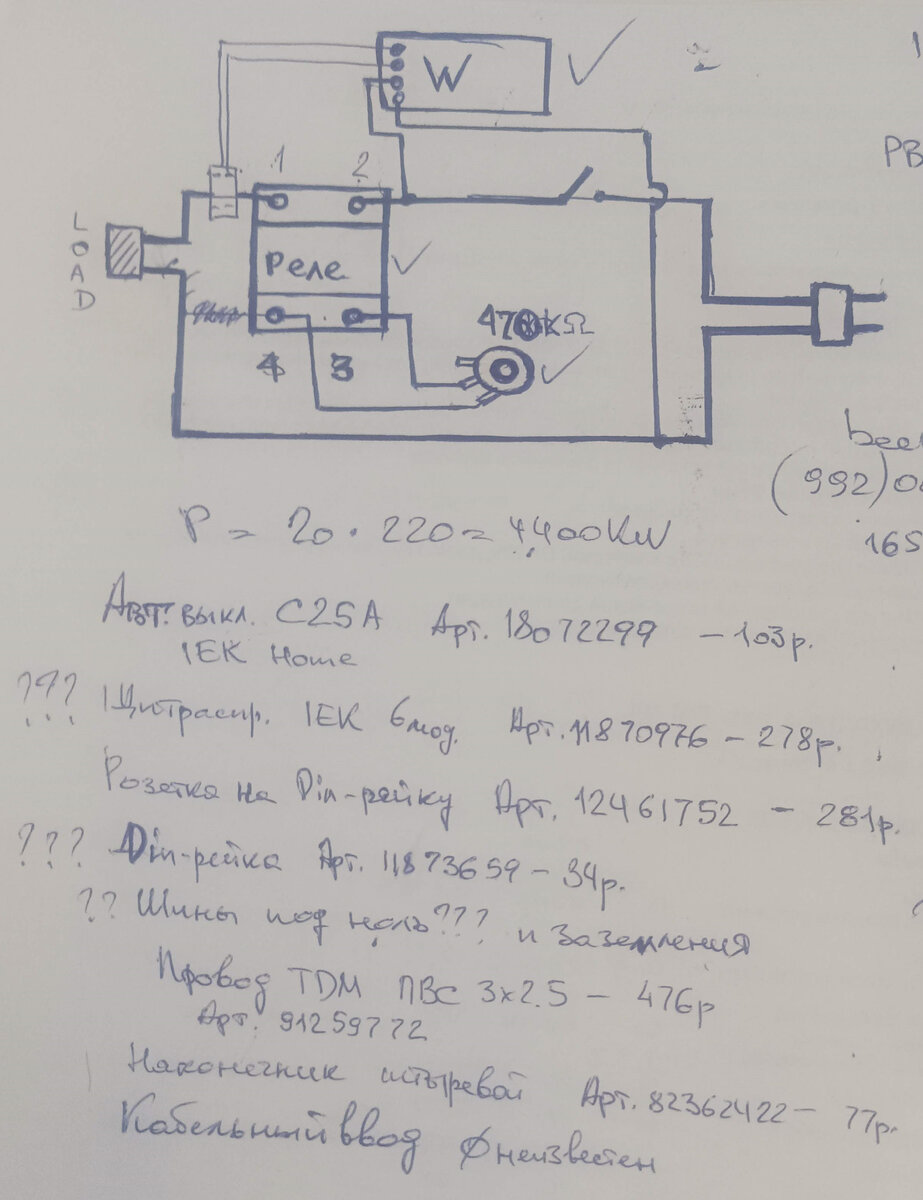 W
1 2
LOAD
Реле
470KΩ
4 3
РВ
bee
(992)0
165
P = 20 · 220 = 4400KW
Авт. выкл. C25A Арт. 18072299 – 103р.
IEK Home
??? Щитраспр. IEK 6мод. Арт. 11870976 – 278р.
Розетка на Din-рейку Арт. 12461752 – 281р.
??? Din-рейка Арт. 11873659 – 34р.
?? Шины под ноль??? и Заземления
Провод TDM ПВС 3x2.5 – 476р
Арт. 91259772
Наконечник штыревой Арт. 82362422 – 77р.
Кабельный ввод ϕ неизвестен